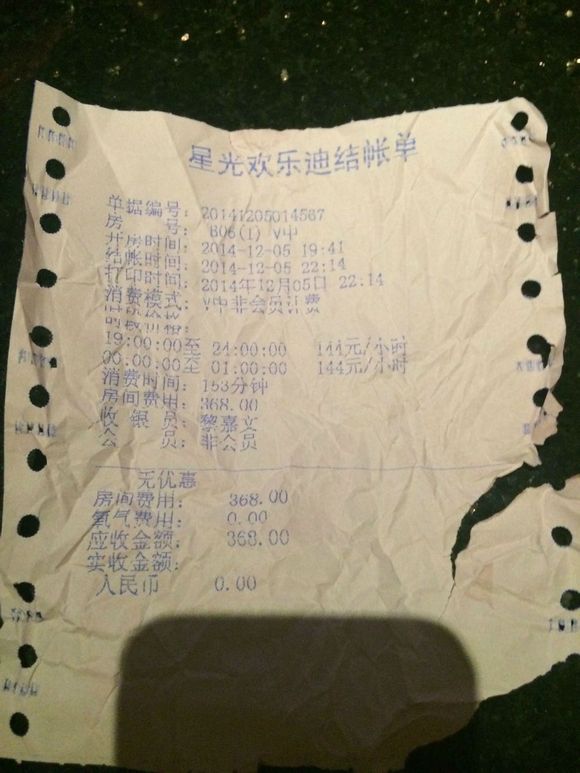 星光欢乐迪结帐单
单据编号: 20141205014587
房 号: 606(1) V中
开房时间: 2014-12-05 19:41
结帐时间: 2014-12-05 22:14
打印时间: 2014年12月05日 22:14
消费模式: V中非会员计费
时段价格:
19:00:00至 24:00:00 144元/小时
00:00:00至 01:00:00 144元/小时
消费时间: 153分钟
房间费用: 368.00
收 银 员: 黎嘉文
会 员: 非会员
无优惠
房间费用: 368.00
氧气费用: 0.00
应收金额: 368.00
实收金额:
人民币 0.00